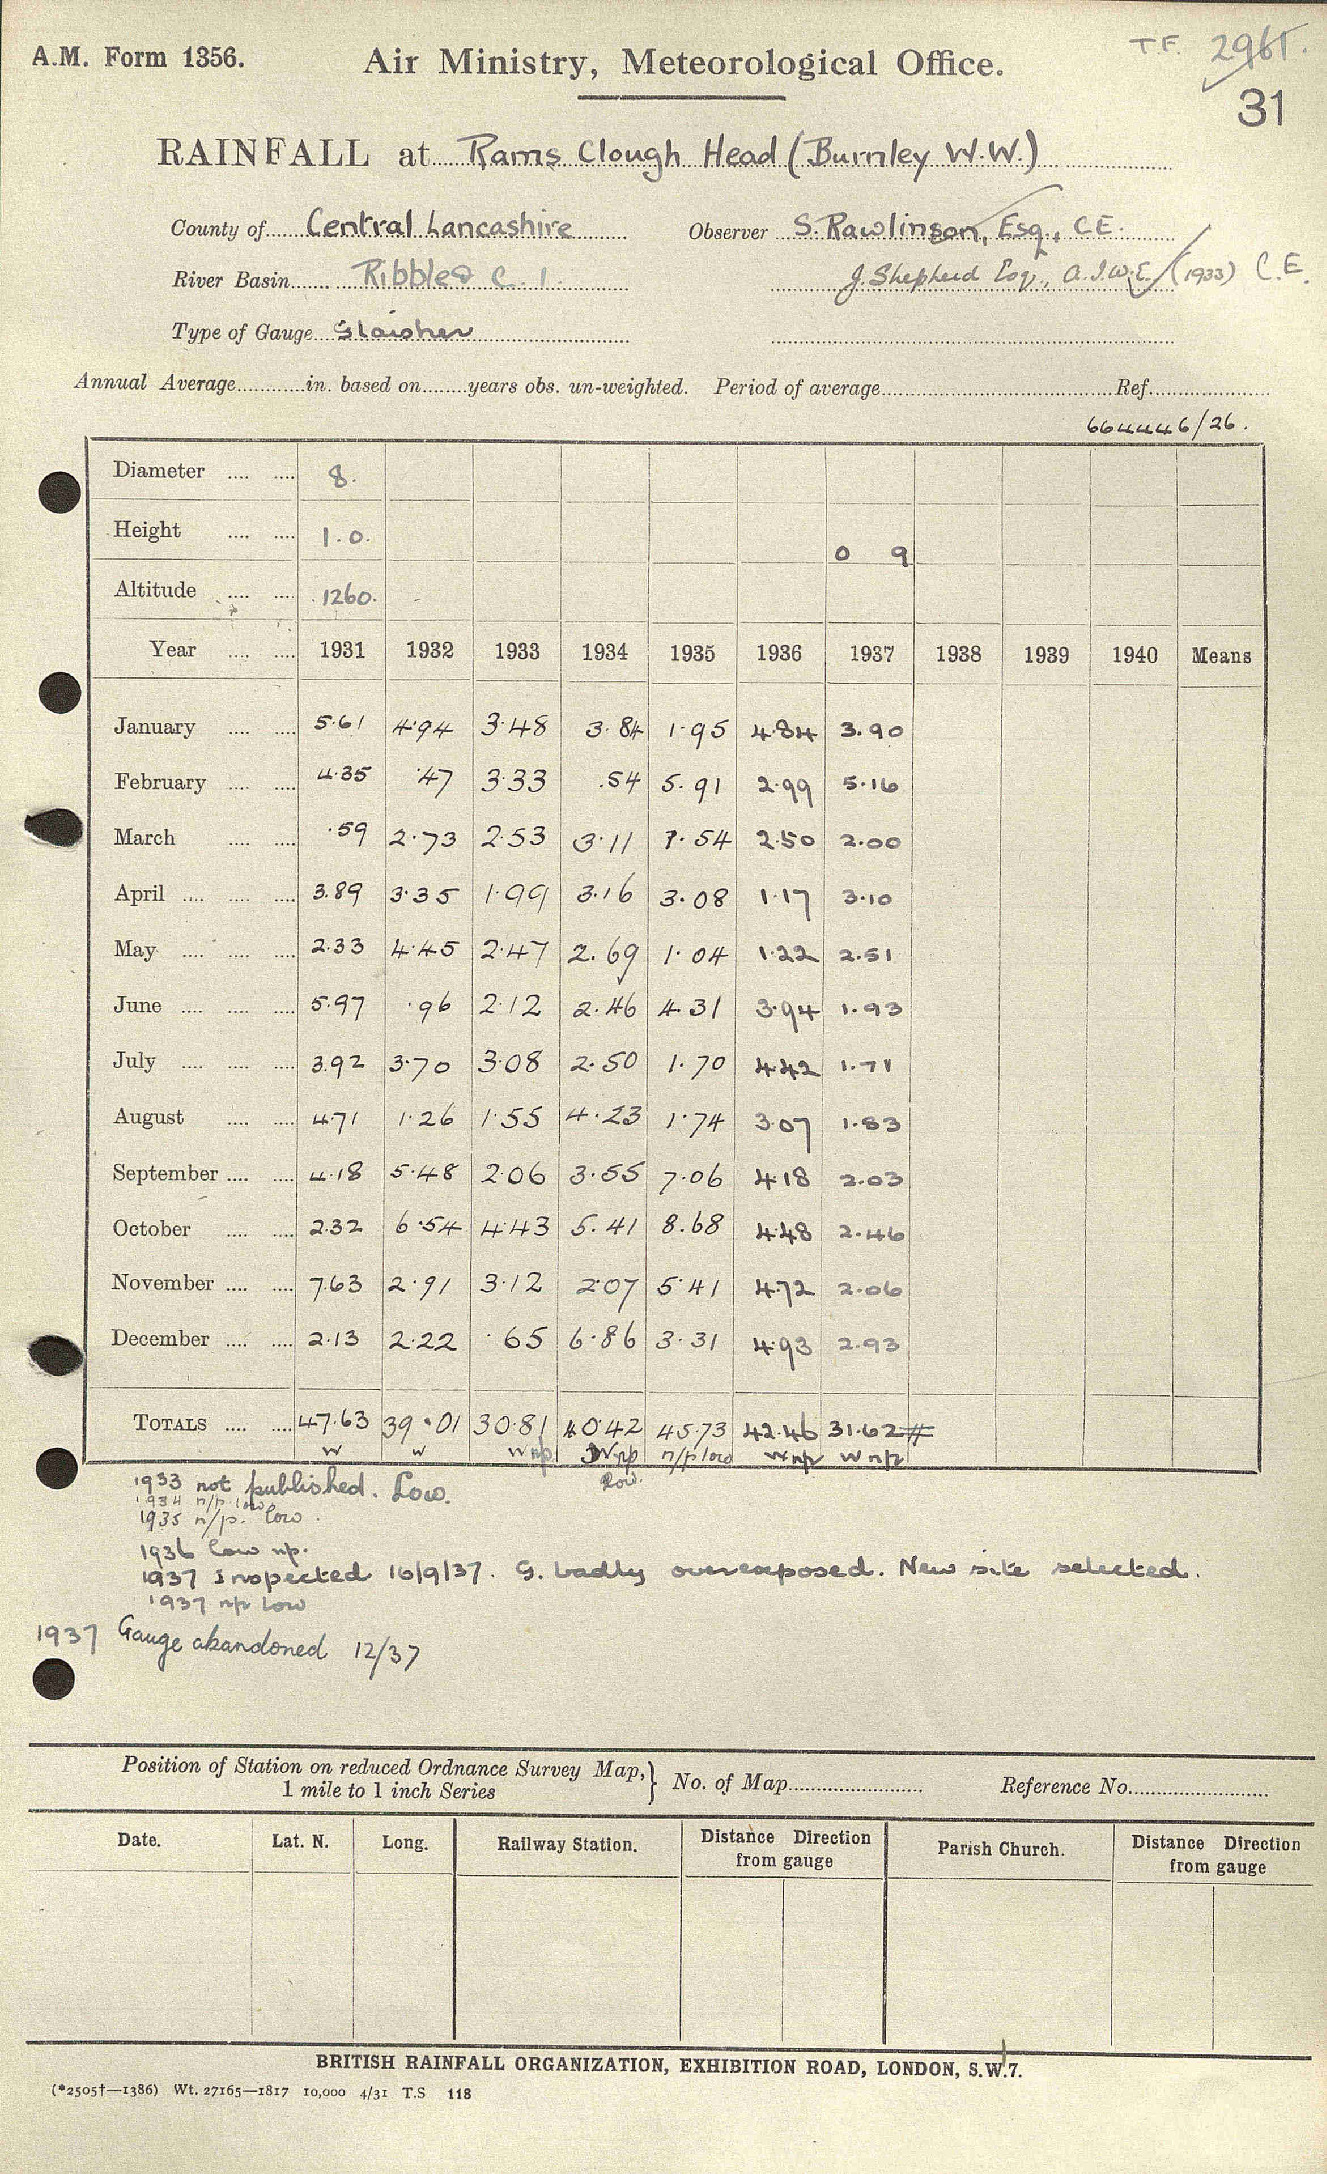 A.M. Form 1356.
Air Ministry, Meteorological Office.
T.F. 2961.
31
RAINFALL at Rams Clough Head (Burnley W.W.)
County of Central Lancashire Observer S. Rawlinson, Esq., C.E.
River Basin Ribble C. 1. J. Shepherd Esq., A.I.W.E. (1933) C.E.
Type of Gauge Glaisher
Annual Average in. based on years obs. un-weighted. Period of average Ref.
664446/26.
Diameter 8.
Height 1.0. 0 9
Altitude 1260.
Year 1931 1932 1933 1934 1935 1936 1937 1938 1939 1940 Means
January 5.61 4.94 3.48 3.84 1.95 4.84 3.90
February 4.35 .47 3.33 .54 5.91 2.99 5.16
March .59 2.73 2.53 3.11 1.54 2.50 2.00
April 3.89 3.35 1.99 3.16 3.08 1.17 3.10
May 2.33 4.45 2.47 2.69 1.04 1.22 2.51
June 5.97 .96 2.12 2.46 4.31 3.94 1.93
July 3.92 3.70 3.08 2.50 1.70 4.42 1.71
August 4.71 1.26 1.55 4.23 1.74 3.07 1.83
September 4.18 5.48 2.06 3.55 7.06 4.18 2.03
October 2.32 6.54 4.43 5.41 8.68 4.48 2.46
November 7.63 2.91 3.12 2.07 5.41 4.72 2.06
December 2.13 2.22 .65 6.86 3.31 4.93 2.93
TOTALS 47.63 39.01 30.81 40.42 45.73 42.46 31.62 #
W W W np W np n/p low W np W np
low.
1933 not published. Low.
1934 n/p low
1935 n/p. low.
1936 low np.
1937 Inspected 16/9/37. G. badly overexposed. New site selected.
1937 np low
1937 Gauge abandoned 12/37
Position of Station on reduced Ordnance Survey Map, } No. of Map Reference No.
1 mile to 1 inch Series
Date. Lat. N. Long. Railway Station. Distance Direction from gauge Parish Church. Distance Direction from gauge
BRITISH RAINFALL ORGANIZATION, EXHIBITION ROAD, LONDON, S.W.7.
(*2505†—1386) Wt. 27165—1817 10,000 4/31 T.S 118